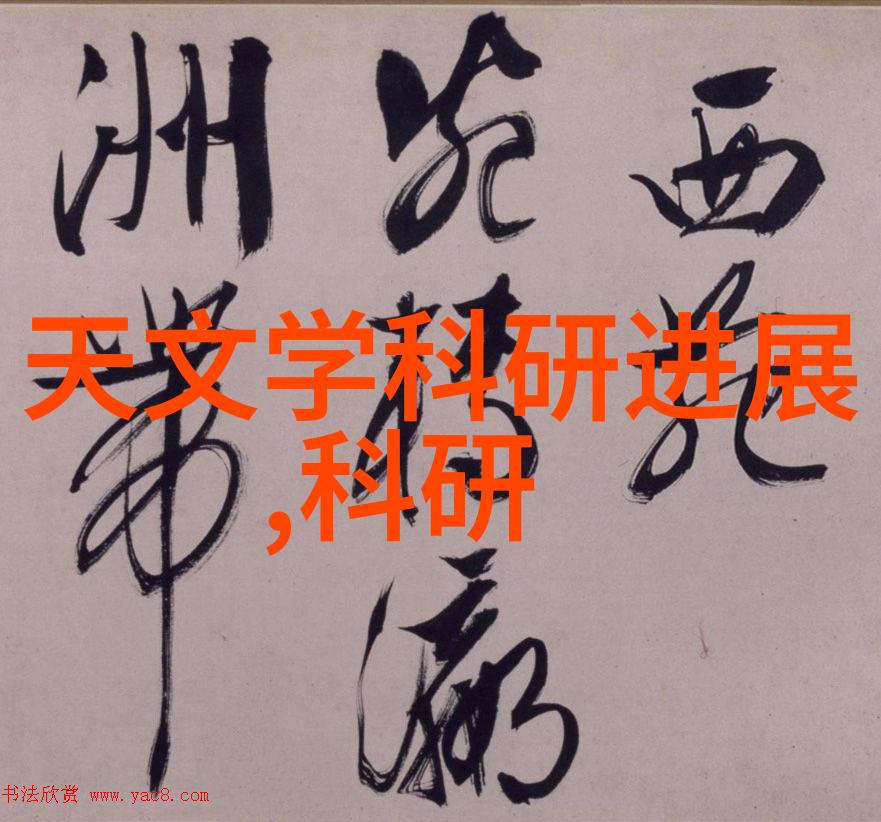 西苑
瀛
洲帶
天文学科研进展
,科研
书法欣赏 www.yac8.com